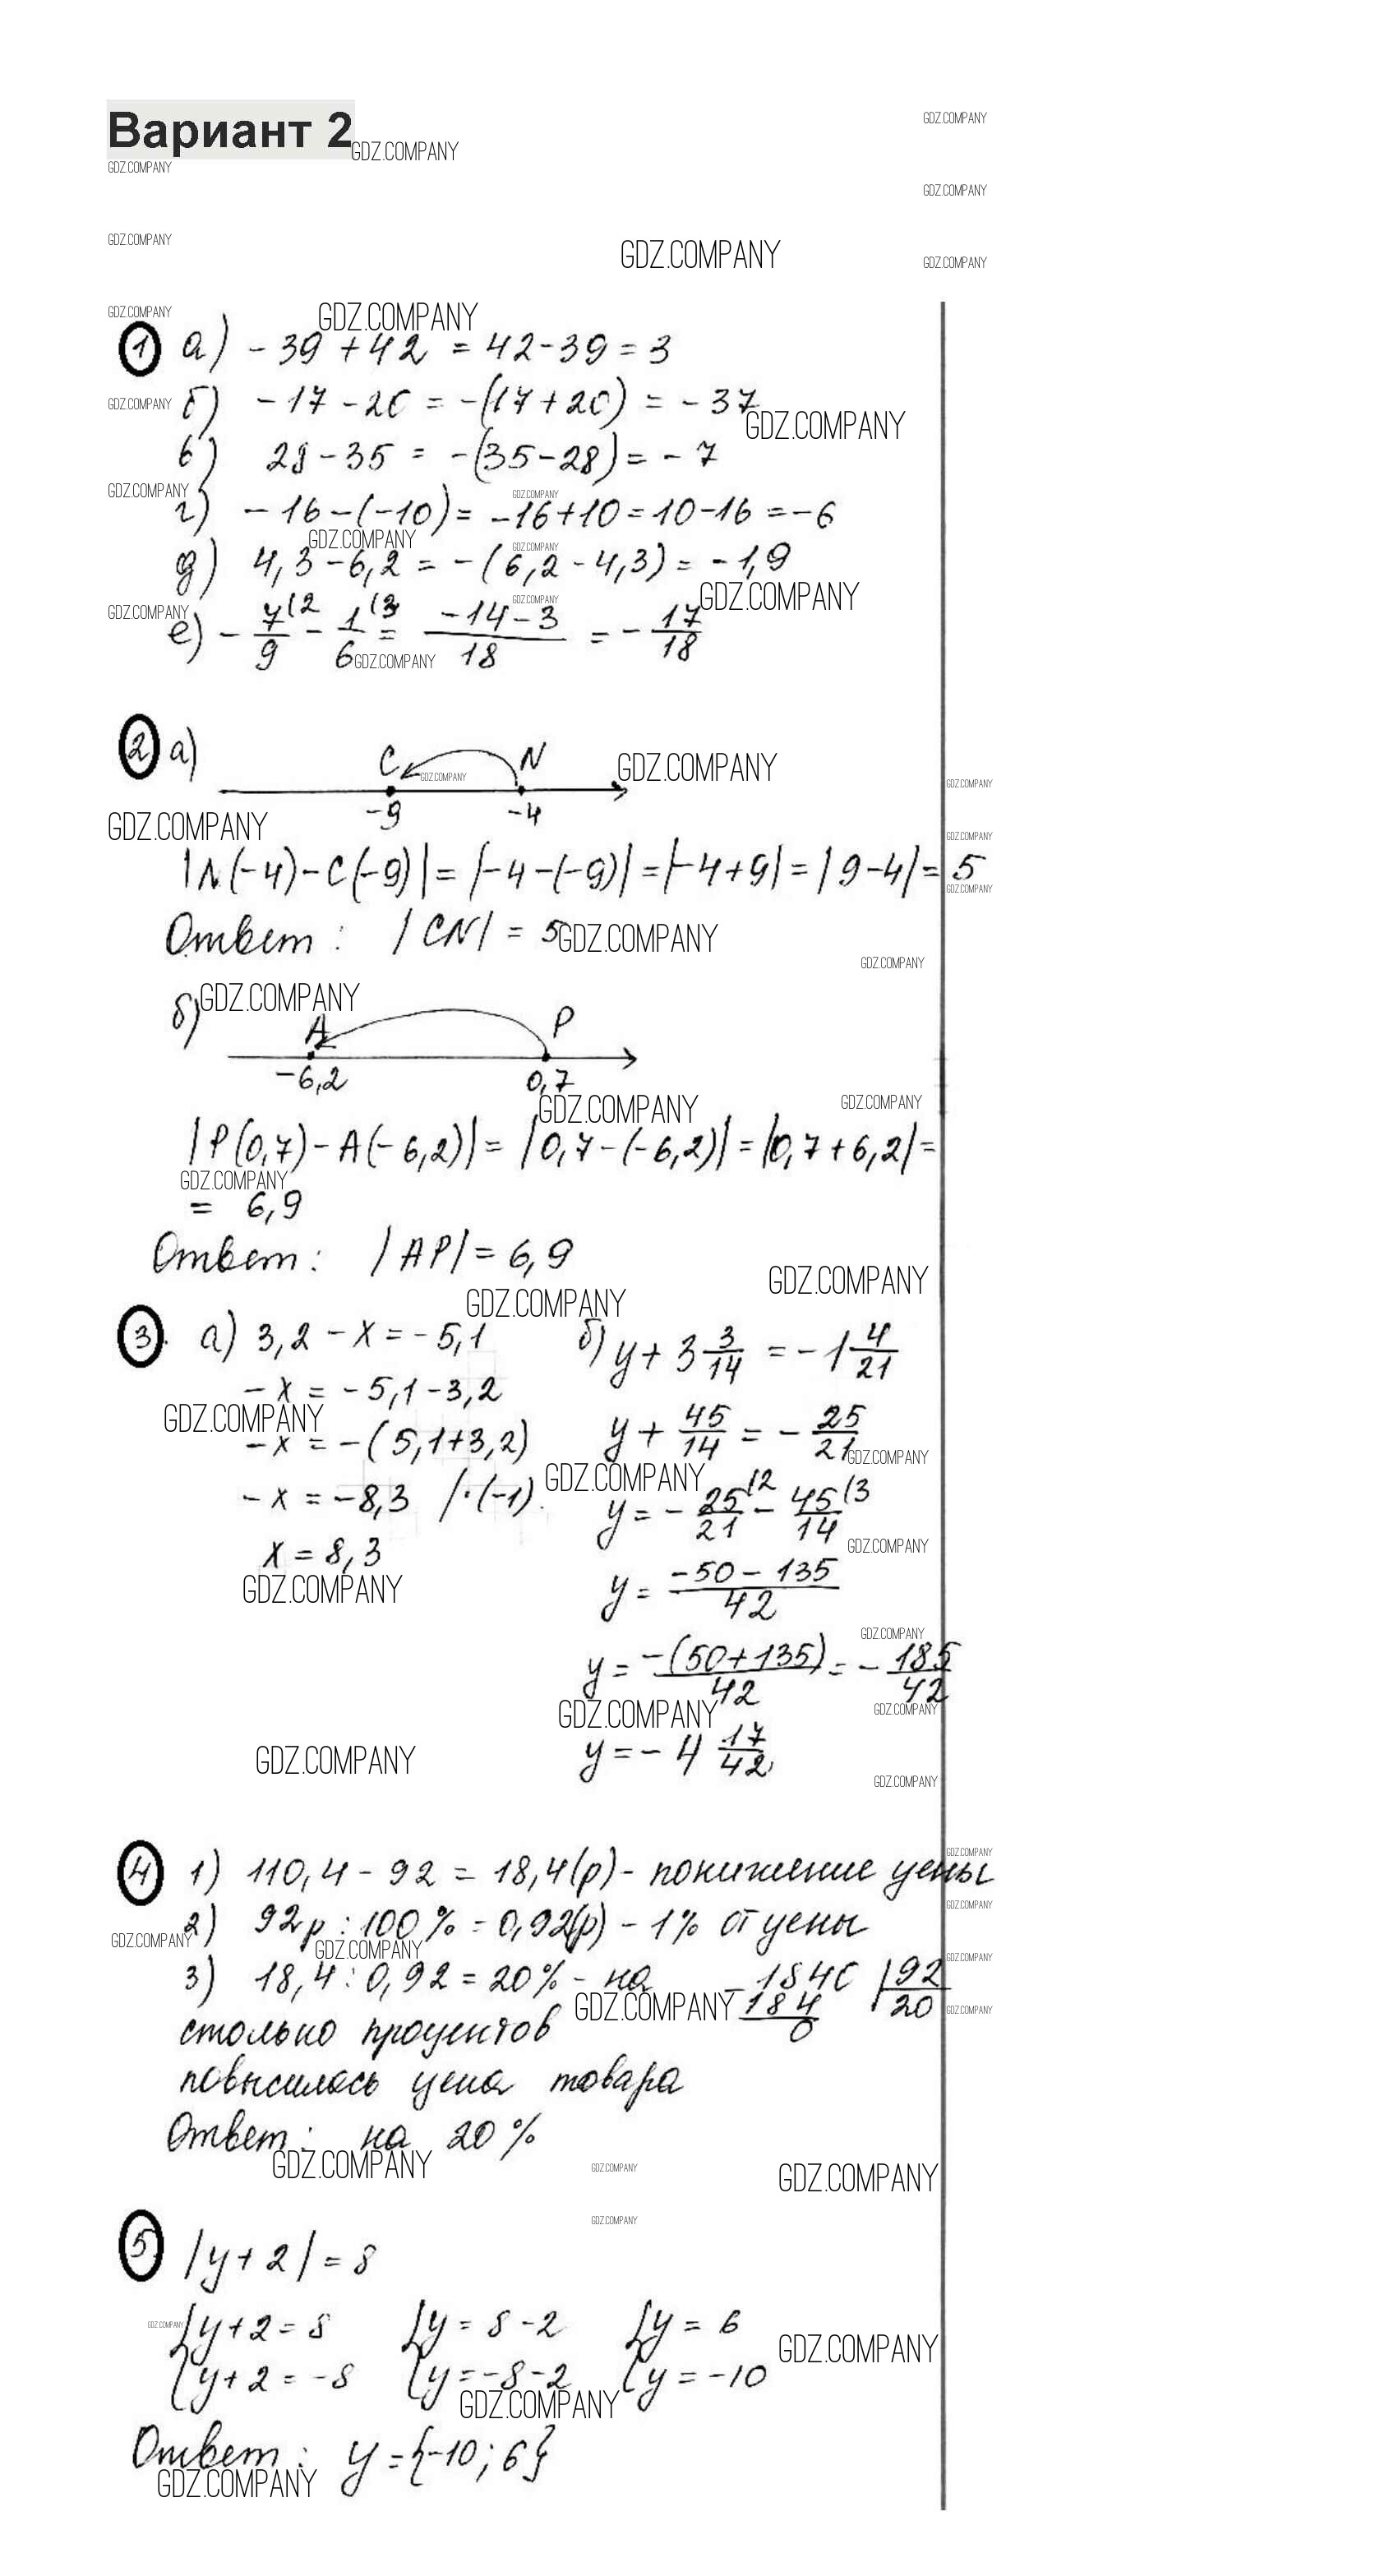 Вариант 2
GDZ.COMPANY
1 а) - 39 + 42 = 42 - 39 = 3
б) - 17 - 20 = -(17 + 20) = - 37
в) 28 - 35 = -(35 - 28) = - 7
г) - 16 - (-10) = -16 + 10 = 10 - 16 = - 6
д) 4,3 - 6,2 = -(6,2 - 4,3) = - 1,9
е) - 7/9 (2 - 1/6 (3 = (-14 - 3)/18 = - 17/18
2 а)
C N
-9 -4
|N(-4) - C(-9)| = |-4 - (-9)| = |-4 + 9| = |9 - 4| = 5
Ответ: |CN| = 5
б)
A P
-6,2 0,7
|P(0,7) - A(-6,2)| = |0,7 - (-6,2)| = |0,7 + 6,2| =
= 6,9
Ответ: |AP| = 6,9
3. а) 3,2 - x = - 5,1
- x = - 5,1 - 3,2
- x = -(5,1 + 3,2)
- x = -8,3 /·(-1)
x = 8,3
б) y + 3 3/14 = - 1 4/21
y + 45/14 = - 25/21
y = - 25/21 (2 - 45/14 (3
y = (-50 - 135)/42
y = -(50 + 135)/42 = - 185/42
y = - 4 17/42
4 1) 110,4 - 92 = 18,4 (р) - понижение цены
2) 92р : 100% = 0,92(р) - 1% от цены
3) 18,4 : 0,92 = 20% - на
столько процентов
повысилась цена товара
- 1840 | 92
184 20
0
Ответ: на 20%
5 |y + 2| = 8
{y + 2 = 8 {y = 8 - 2 {y = 6
{y + 2 = -8 {y = -8 - 2 {y = -10
Ответ: y = {-10; 6}